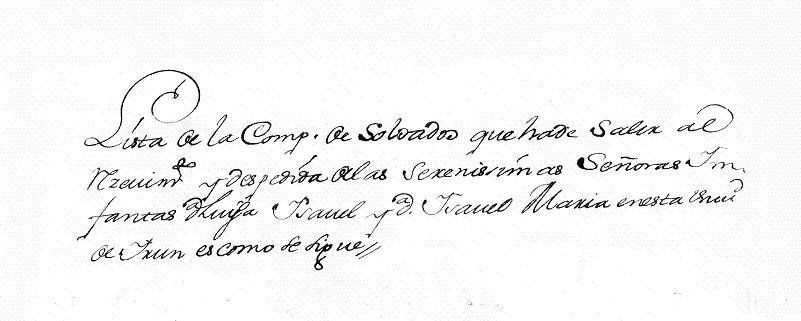 Lista de la Comp. de Soldados que hade Salir al
Rzevimto y despedida de las Serenissimas Señoras Im
fantas Da Luisa Isavel y Da. Isavel Maria en esta Univd
de Irun es como se sigue